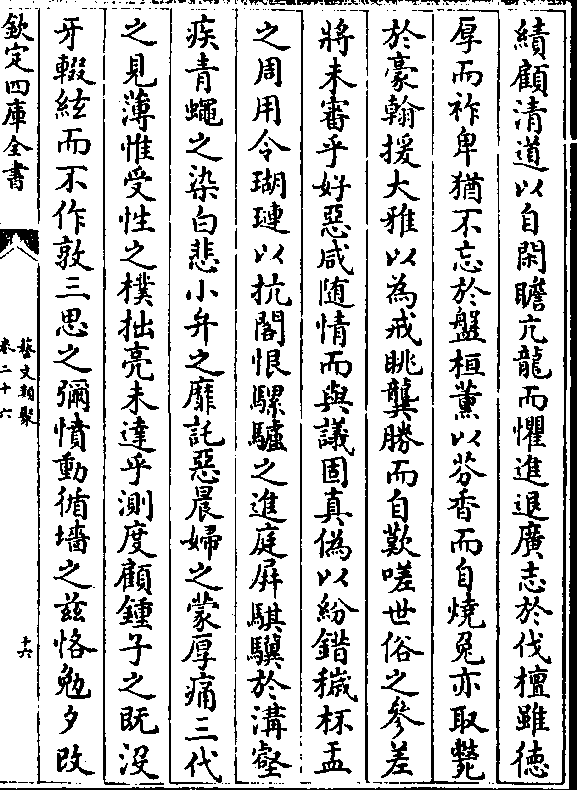 績顧清道以自閑瞻亢龍而懼進退廣志於伐檀雖徳
厚而祚卑猶不忘於盤桓薫以芬香而自燒兔亦取斃
於豪翰援大雅以為戒眺龔勝而自歎嗟世俗之參差
將未審乎好惡咸随情而與議固真偽以紛錯穢杯盂
之周用令瑚璉以抗閣恨騾驢之進庭屏騏驥於溝壑
疾青蠅之染白悲小弁之靡託惡晨婦之蒙厚痛三代
之見薄惟受性之樸拙亮未達乎測度顧鍾子之既没
牙輟絃而不作敦三思之彌憤動循墻之兹恪勉夕改
欽定四庫全書
藝文類聚
卷二十六
十六